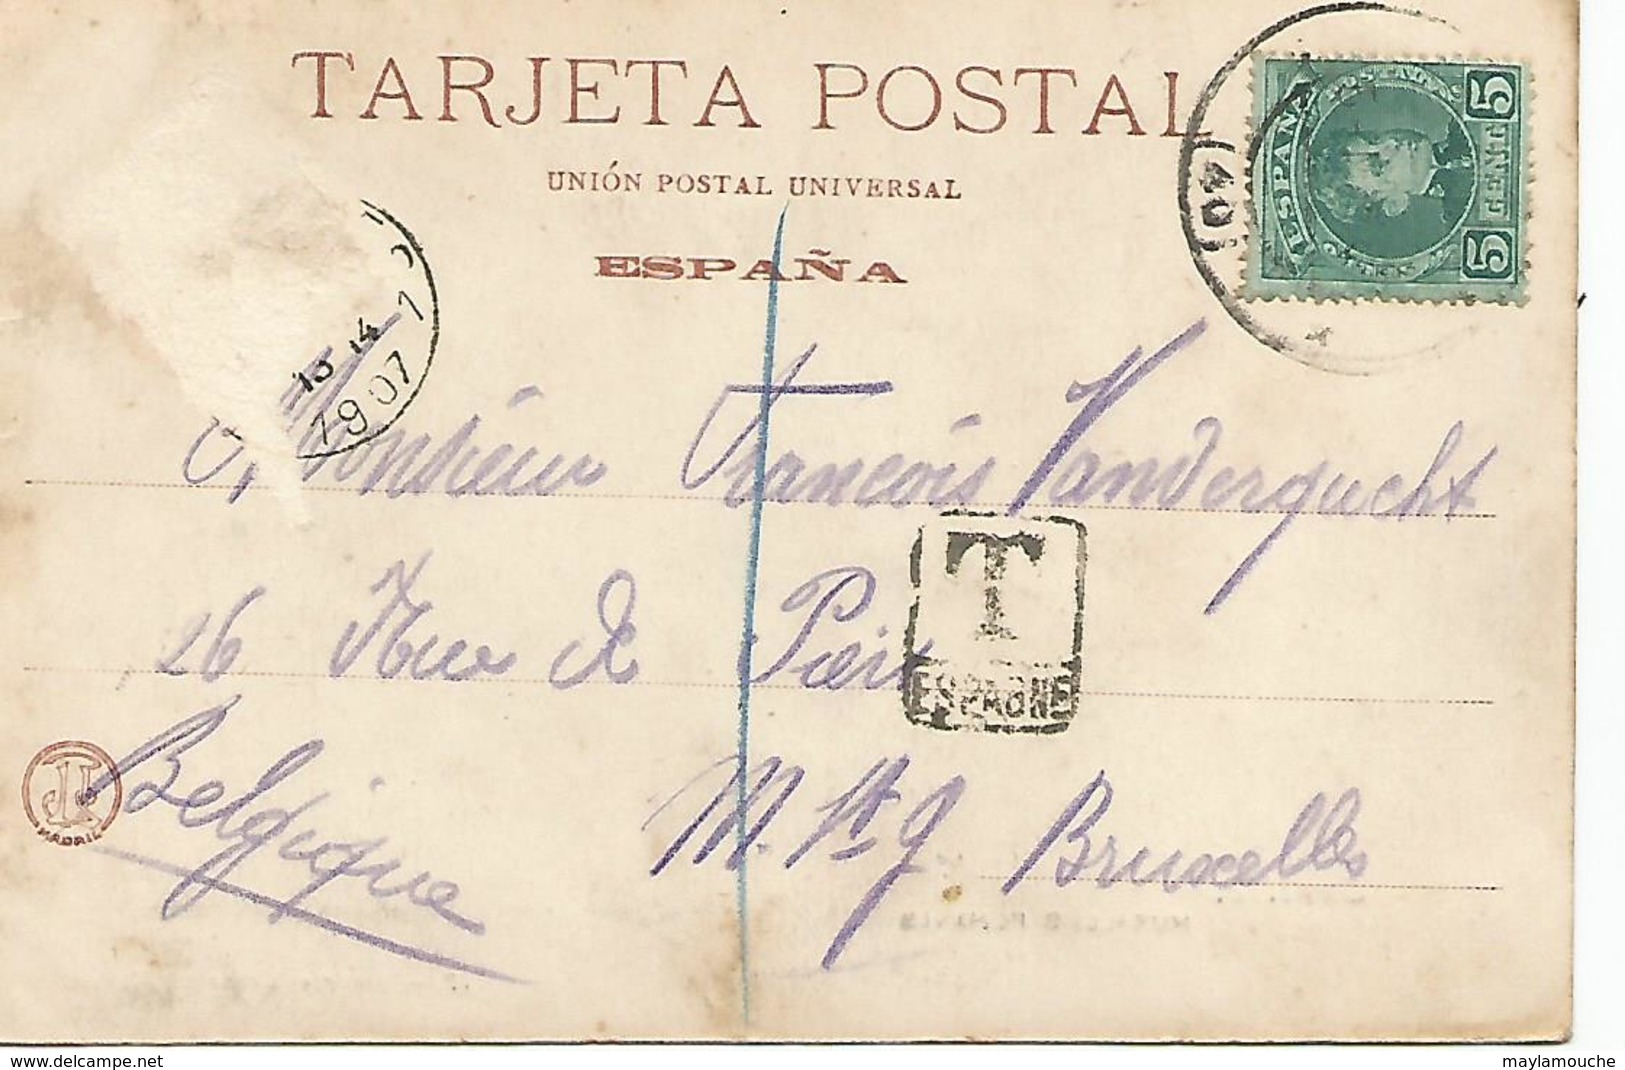 TARJETA POSTAL
UNIÓN POSTAL UNIVERSAL
ESPAÑA
ESPAÑA
5 CENTS 5
13-14
1907
Monsieur François Vandergucht
T
ESPAGNE
26 Rue de
Belgique
M. St J Bruxelles
MADRID
www.delcampe.net
maylamouche